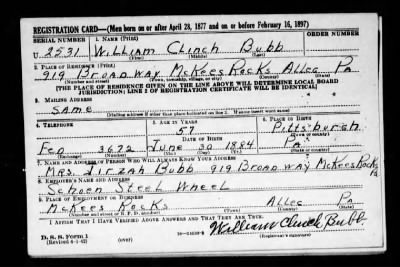 REGISTRATION CARD—(Men born on or after April 28, 1877 and on or before February 16, 1897)
SERIAL NUMBER 1. NAME (Print) ORDER NUMBER
U 2531 William Clinch Bubb
(First) (Middle) (Last)
2. PLACE OF RESIDENCE (Print)
919 Broadway McKees Rocks Alleg Pa
(Number and street) (Town, township, village, or city) (County) (State)
[THE PLACE OF RESIDENCE GIVEN ON THE LINE ABOVE WILL DETERMINE LOCAL BOARD
JURISDICTION; LINE 2 OF REGISTRATION CERTIFICATE WILL BE IDENTICAL]
3. MAILING ADDRESS
Same
[Mailing address if other than place indicated on line 2. If same insert word same]
4. TELEPHONE 5. AGE IN YEARS 6. PLACE OF BIRTH
57 Pittsburgh
DATE OF BIRTH (Town or county)
Fed 3672 June 30 1884 Pa
(Exchange) (Number) (Mo.) (Day) (Yr.) (State or country)
7. NAME AND ADDRESS OF PERSON WHO WILL ALWAYS KNOW YOUR ADDRESS
Mrs. Tirzah Bubb 919 Broadway McKees Rocks Pa
8. EMPLOYER'S NAME AND ADDRESS
Schoen Steel Wheel
9. PLACE OF EMPLOYMENT OR BUSINESS
McKees Rocks Alleg Pa
(Number and street or R. F. D. number) (Town) (County) (State)
I AFFIRM THAT I HAVE VERIFIED ABOVE ANSWERS AND THAT THEY ARE TRUE.
D. S. S. Form 1 William Clinch Bubb
(Revised 4-1-42) (over) (Registrant's signature)